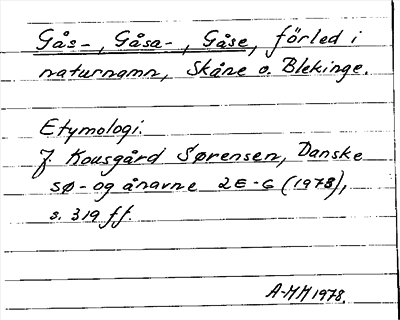 Gås-, Gåsa-, Gåse, förled i
naturnamn, Skåne o. Blekinge.
Etymologi.
J. Kousgård Sørensen, Danske
sø- og ånavne 2E-G (1978),
s. 319 ff.
A-MM 1978.